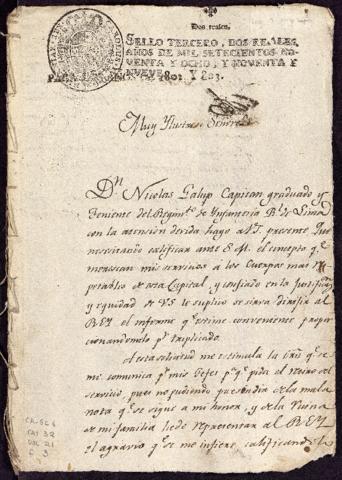 Dos reales.
SELLO TERCERO, DOS REALES,
AÑOS DE MIL SETECIENTOS NO-
VENTA Y OCHO, Y NOVENTA Y
NUEVE.
PARA 1802 Y 803.
Muy Ylustre Señor
Dn. Nicolas Galup Capitan graduado y
Teniente del Regimto. de Infanteria Rl. de Lima
con la atencion devida hago a V.S. presente: Que
necesitando calificar ante S.M. el concepto qe.
merescan mis servicios a los Cuerpos mas res
petables de esta Capital, y confiado en la Justificn.
y equidad de VS. le suplico se sirva dirigir al
REY el informe qe. estime conveniente propor
cionandomelo pr. triplicado.
A esta solicitud me estimula la qe. se
me comunica pr. mis Gefes pa. qe. pida el retiro del
servicio, pues no pudiendo prescindir de la mala
nota qe. se sigue a mi honor, y de la Ruina
de mi familia he de representar al REY
el agravio qe. se me infiere, calificandole
CA-GC 4
CAJ 32
DOC 21
F 3